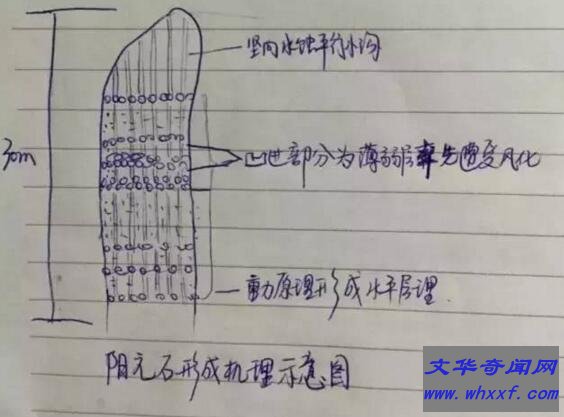 竖向水蚀平行水沟
30m
凹进部分为薄弱层率先遭受风化
重力原理形成水平层理.
阳元石形成机理示意图
文华奇闻网
www.whxxf.com